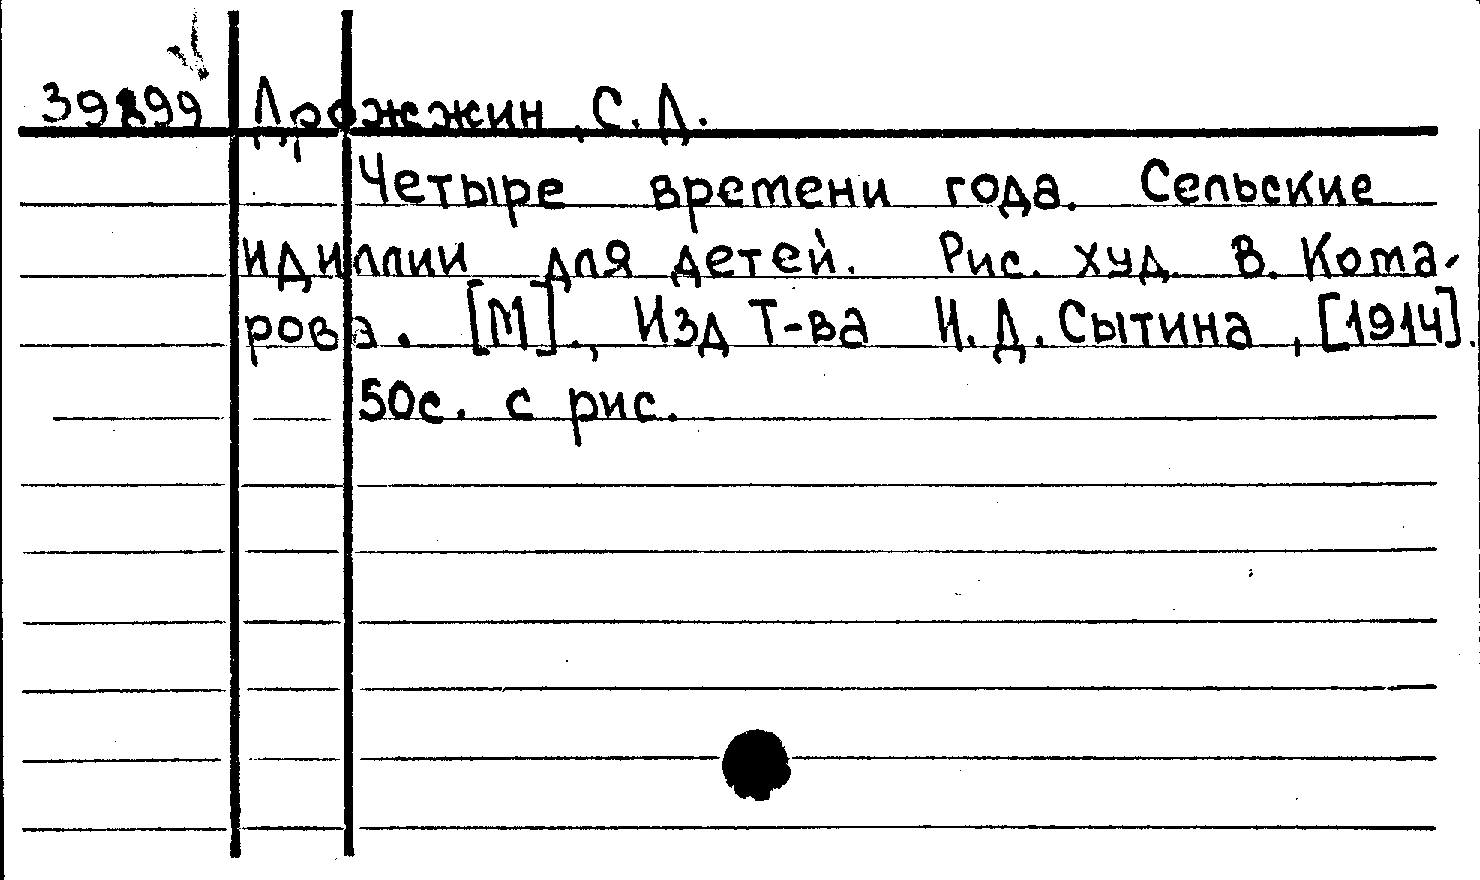 39899 Дрожжин, С. Д.
Четыре времени года. Сельские
идиллии для детей. Рис. худ. В. Кома-
рова. [М]., Изд Т-ва И. Д. Сытина, [1914].
50с. с рис.